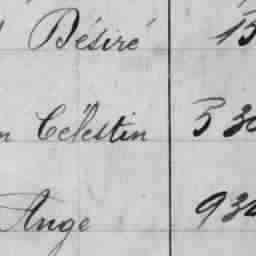 Désiré 15
n Célestin 5 30
Ange 930